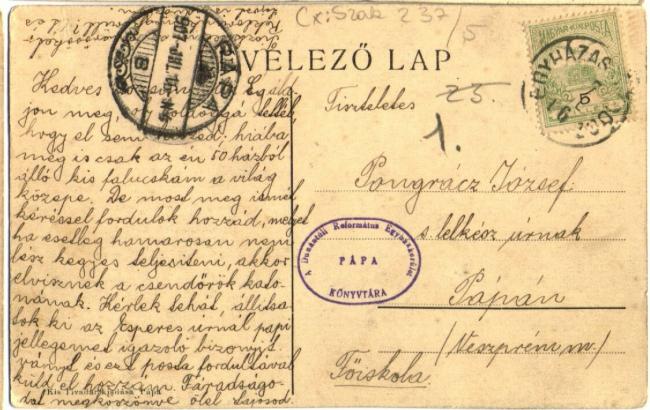 Cx: Szak 237
/5
LEVELEZŐ LAP
PÁPA
907 JUL 17
MAGYAR KIR. POSTA
EGYHÁZAS
5
Kedves
jon meg, hogy
hogy el sem hiába
még is csak az én 50 házból
álló kis falucskám a világ
közepe. De most meg ismét
kéréssel fordulok hozzád, melyet
ha esetleg hamarosan nem
lész kegyes teljesiteni, akkor
elvisznek a csendőrök kato-
nának. Kérlek tehát, állítsa-
tok ki az Esperes úrnál papi
jellegemet igazoló bizonyit-
ványt és ezt posta fordultával
küld el hozzám. Fáradságo-
dat megköszönve ölel Lajosod.
Kis Tivadar kiadása Pápa
Tiszteletes
25.
1.
Pongrácz József
s. lelkész úrnak
Pápán
(Veszprém m.)
Főiskola
A Dunántúli Református Egyházkerület
PÁPA
KÖNYVTÁRA